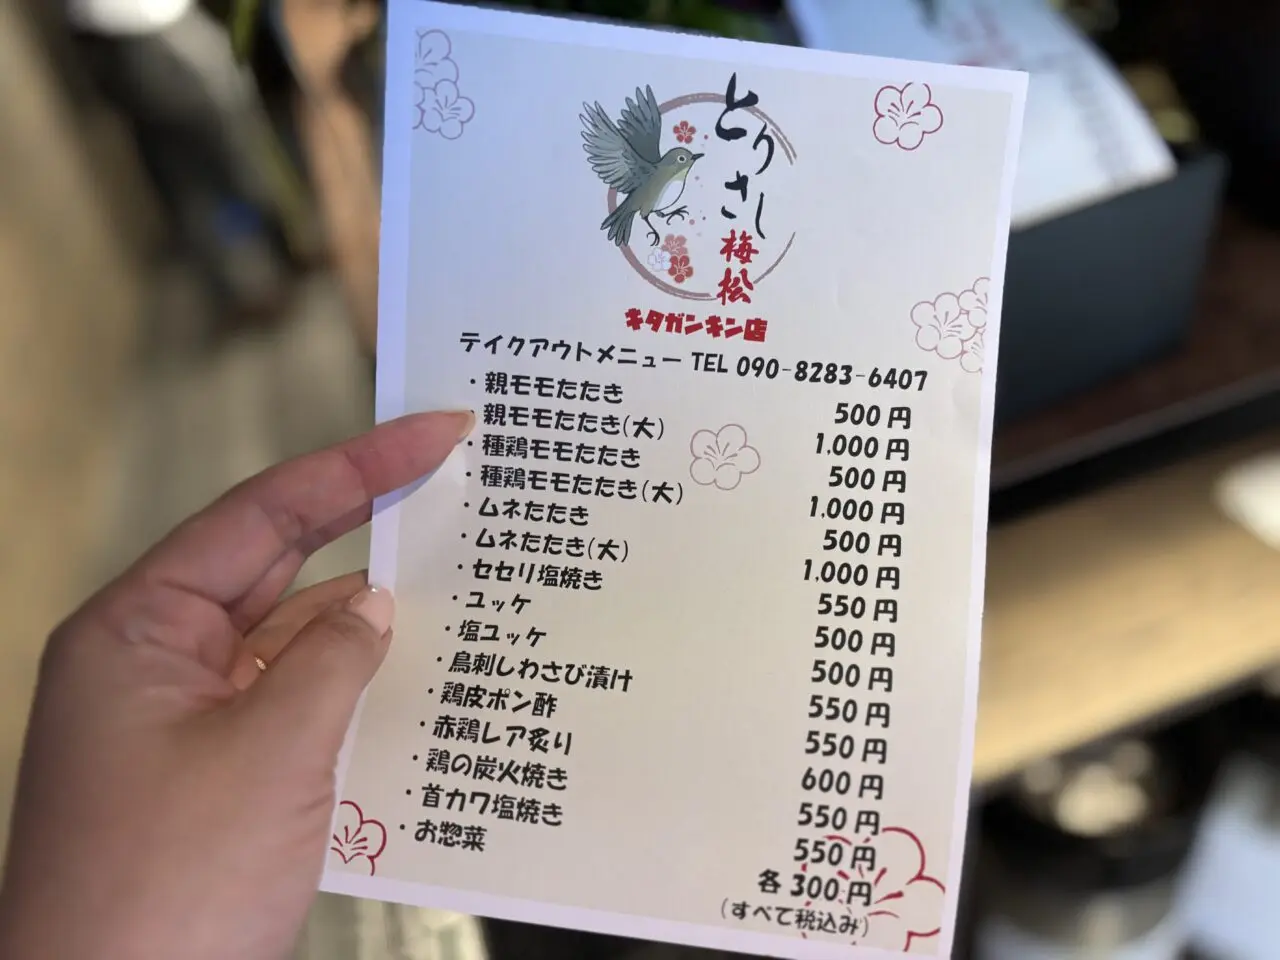 とりさし
梅松
キタガンキン店
テイクアウトメニュー TEL 090-8283-6407
・親モモたたき 500円
・親モモたたき(大) 1,000円
・種鶏モモたたき 500円
・種鶏モモたたき(大) 1,000円
・ムネたたき 500円
・ムネたたき(大) 1,000円
・セセリ塩焼き 550円
・ユッケ 500円
・塩ユッケ 500円
・鳥刺しわさび漬け 550円
・鶏皮ポン酢 550円
・赤鶏レア炙り 600円
・鶏の炭火焼き 550円
・首カワ塩焼き 550円
・お惣菜 各300円
(すべて税込み)